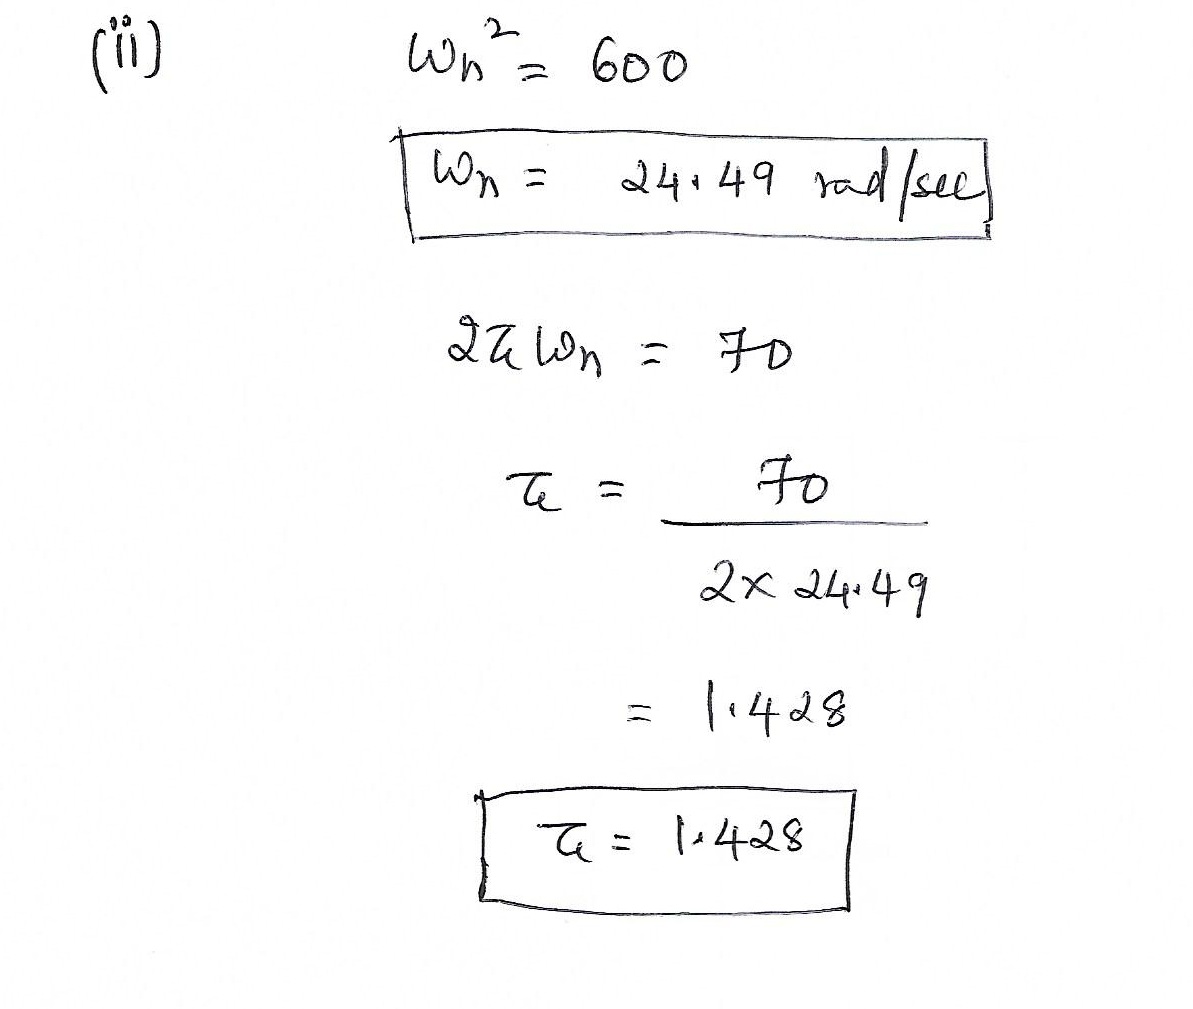 (ii) ωn² = 600
ωn = 24.49 rad/sec
2ζωn = 70
ζ = 70
2x 24.49
= 1.428
ζ = 1.428